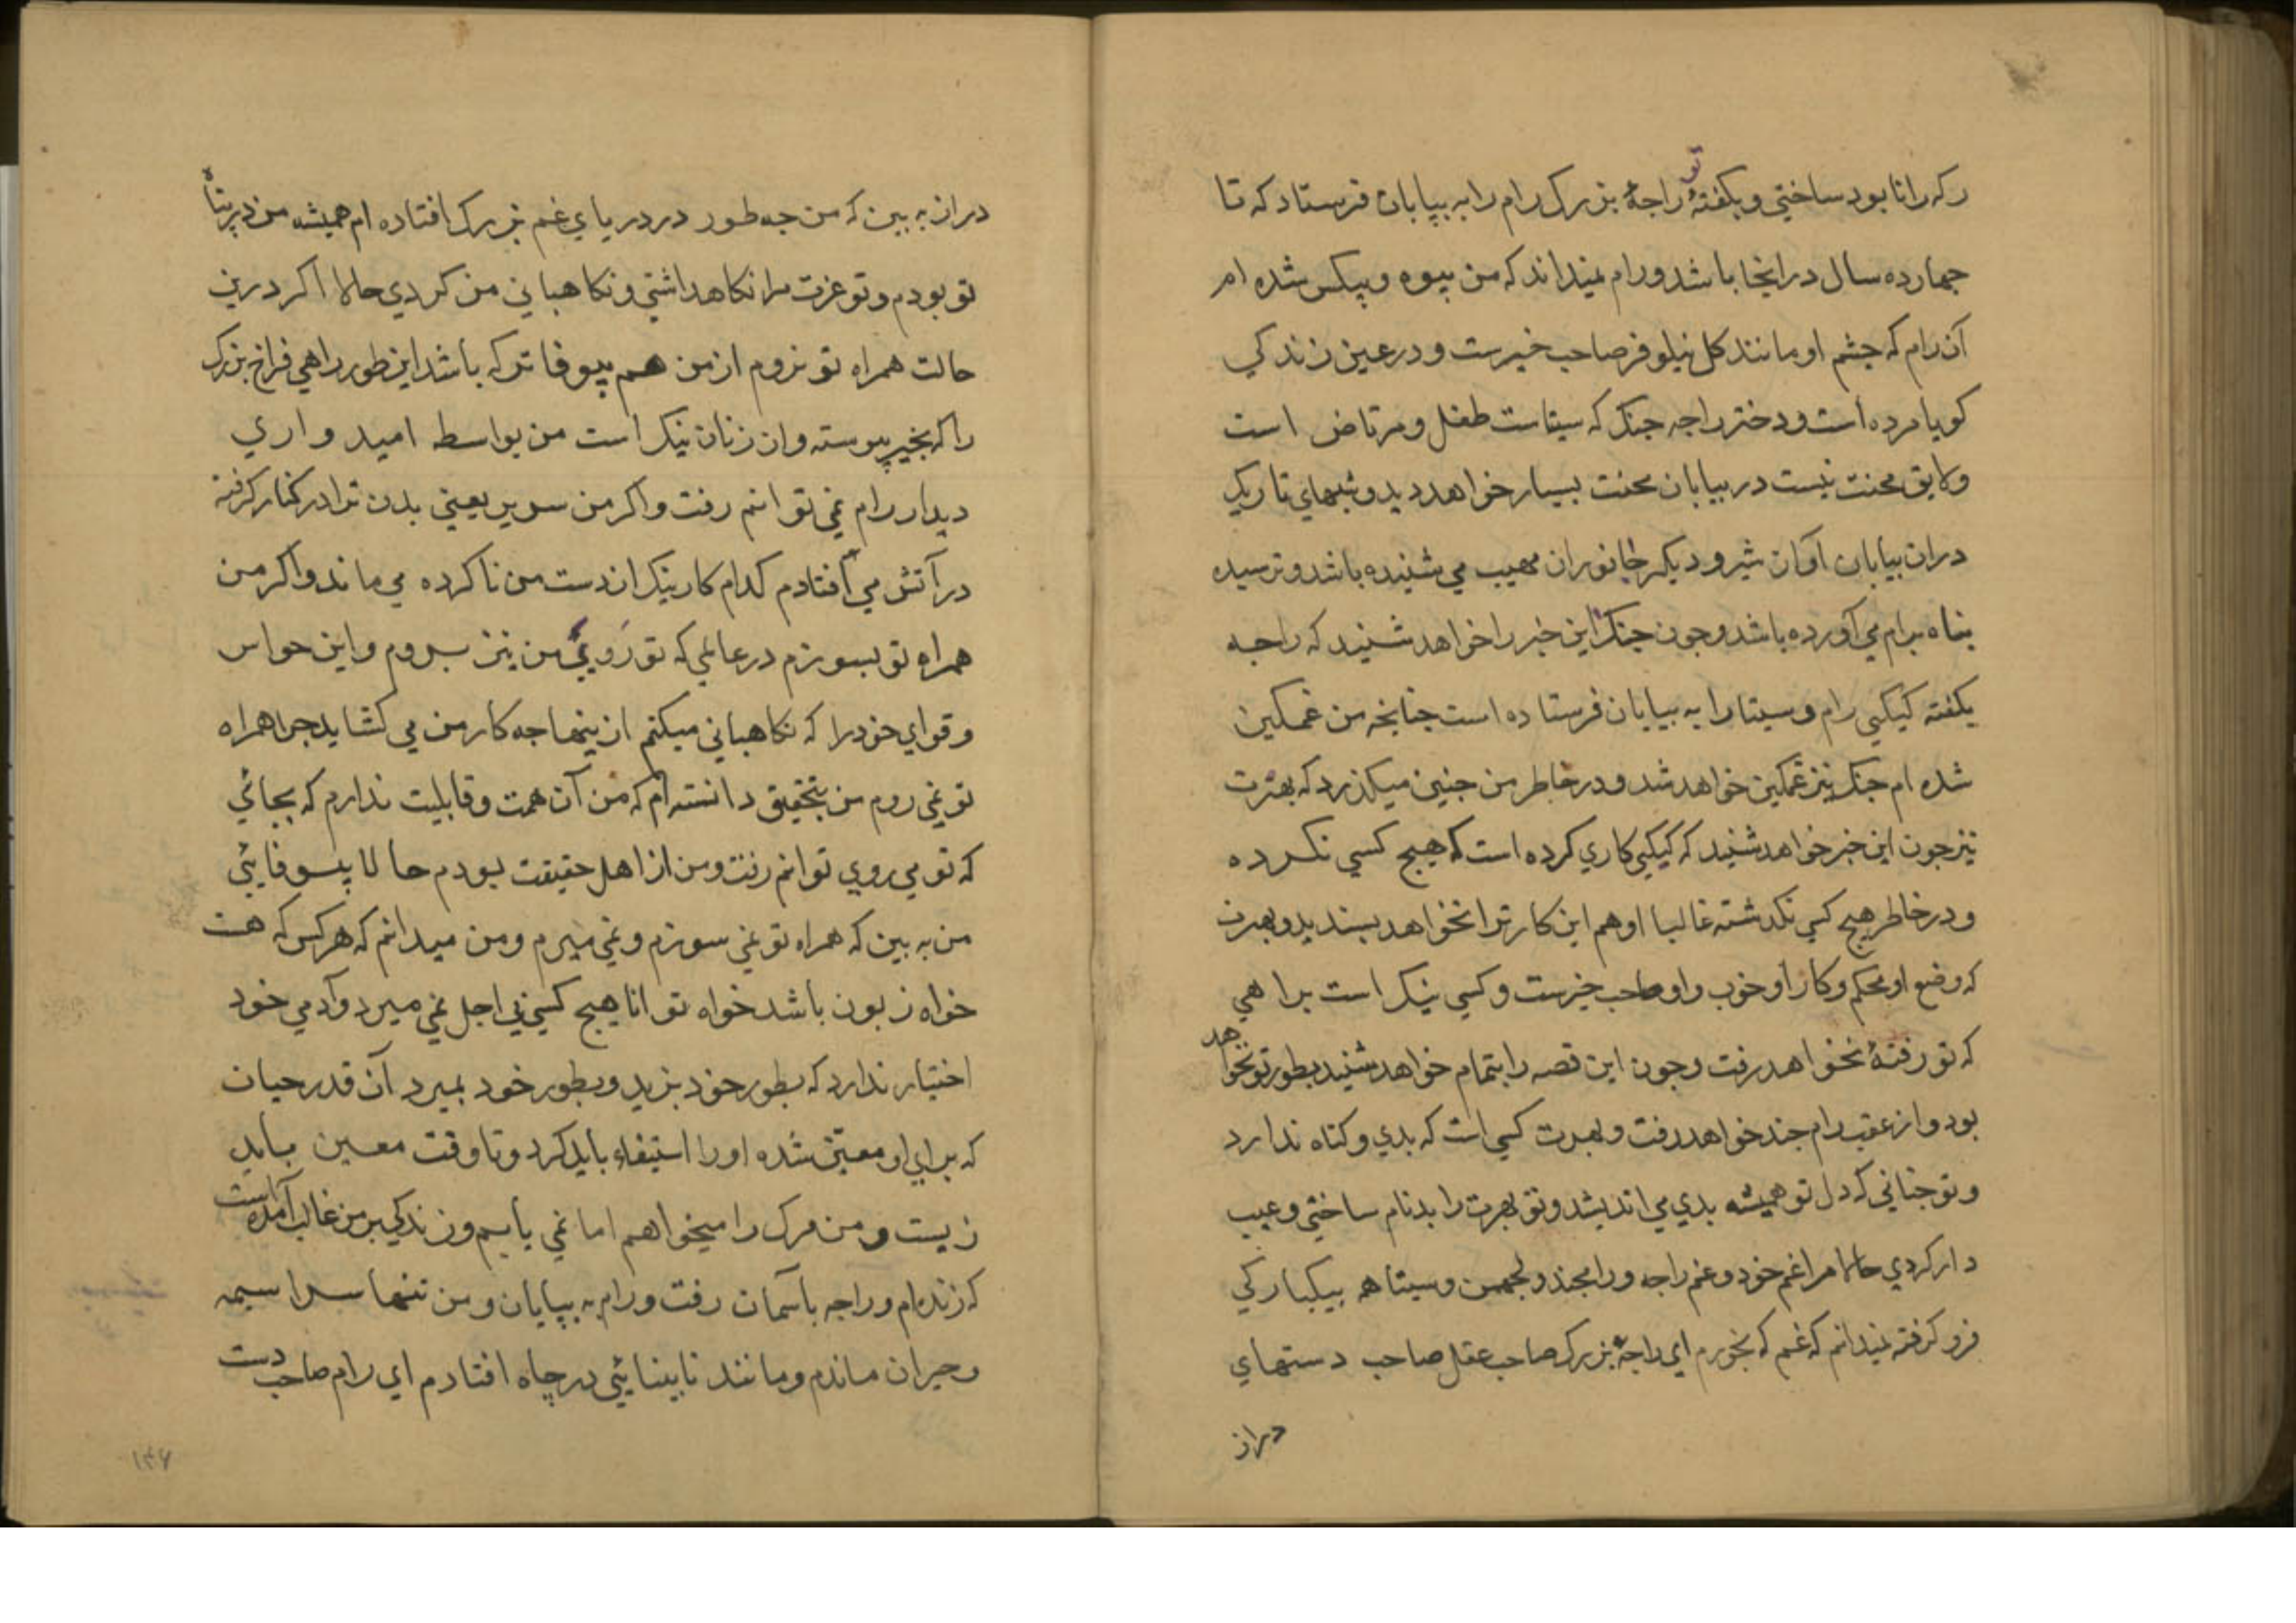 رکه رانا بود ساختی و بکفتهٔ تو راجهٔ بزرک رام را به بیابان فرستاد که تا
جهارده سال در اینجا باشد ورام نمیداند که من بیوه وبیکس شده ام
آن رام که جشم او مانند کل نیلوفر صاحب خیرست و در عین زندکی
کویا مرده است و دختر راجه جنک که سیتاست طفل ومرتاض است
ولایق محنت نیست در بیابان محنت بسیار خواهد دید و شبهای تاریک
دران بیابان آواز شیر و دیکر جانوران مهیب می شنیده باشد وترسیده
بناه برام می آورده باشد وجون جنک این خبر را خواهد شنید که راجه
بکفته کیکیی رام وسیتا را به بیابان فرستاده است جنانجه من غمکین
شده ام جنک نیز غمکین خواهد شد و در خاطر من جنین میکذرد که بهرت
نیز جون این خبر خواهد شنید که کیکیی کاری کرده است که هیج کسی نکرده
ودر خاطر هیج کسی نکذشته غالبا او هم این کار ترا نخواهد بسندید وبهرت
که وضع او محکم وکار او خوب واو صاحب خیرست وکسی نیک است براهی
که تو رفتهٔ نخواهد رفت وجون این قصه را بتمام خواهد شنید بطور تو نخواهد
بود واز عقب رام جند خواهد رفت وبهرت کسی است که بدی وکناه ندارد
وتو جنانی که دل تو همیشه بدی می اندیشد وتو بهرت را بدنام ساختی وعیب
دار کردی حالا مرا غم خود وغم راجه ورامجند ولجهمن وسیتا همه بیکبارکی
فرو کرفته نمیدانم که غم که بخورم ای راجهٔ بزرک صاحب عقل صاحب دستهای
دراز
دراز به بین که من جه طور در دریای غم بزرک افتاده ام همیشه من در بناه
تو بودم وتو عزت مرا نکاهداشتی ونکاهبانی من کردی حالا اکر درین
حالت همراه تو نروم از من هم بیوفا تر که باشد این طور راهی فراخ بزرک
را که بخیر پیوسته وان زنان نیک است من بواسطه امید واری
دیدار رام نمی توانم رفت واکر من سریر یعنی بدن ترا در کنار کرفته
در آتش می افتادم کدام کار نیک از دست من ناکرده می ماند واکر من
همراه تو بسوزم در عالمی که تو رویی من نیز بروم واین حواس
وقوای خود را که نکاهبانی میکنم از ینها جه کار من می کشاید جرا همراه
تو نمی روم من بتحقیق دانسته ام که من آن همت وقابلیت ندارم که بجائی
که تو می روی توانم رفت ومن از اهل حقیقت بودم حالا بیوفائی
من به بین که همراه تو نمی سوزم ونمی میرم ومن میدانم که هرکس که هست
خواه زبون باشد خواه توانا هیج کسی بی اجل نمی میرد وآدمی خود
اختیار ندارد که بطور خود بزید وبطور خود بمیرد آن قدر حیات
که برای او معین شده اورا استیفاء باید کرد وتا وقت معین باید
زیست ومن مرک را میخواهم اما نمی یابم وزندکی بر من غالب آمده است
که زنده ام وراجه باسمان رفت ورام به بیابان ومن تنها سراسیمه
وحیران ماندم ومانند نابینائی در چاه افتادم ای رام صاحب دست
۱۳۶